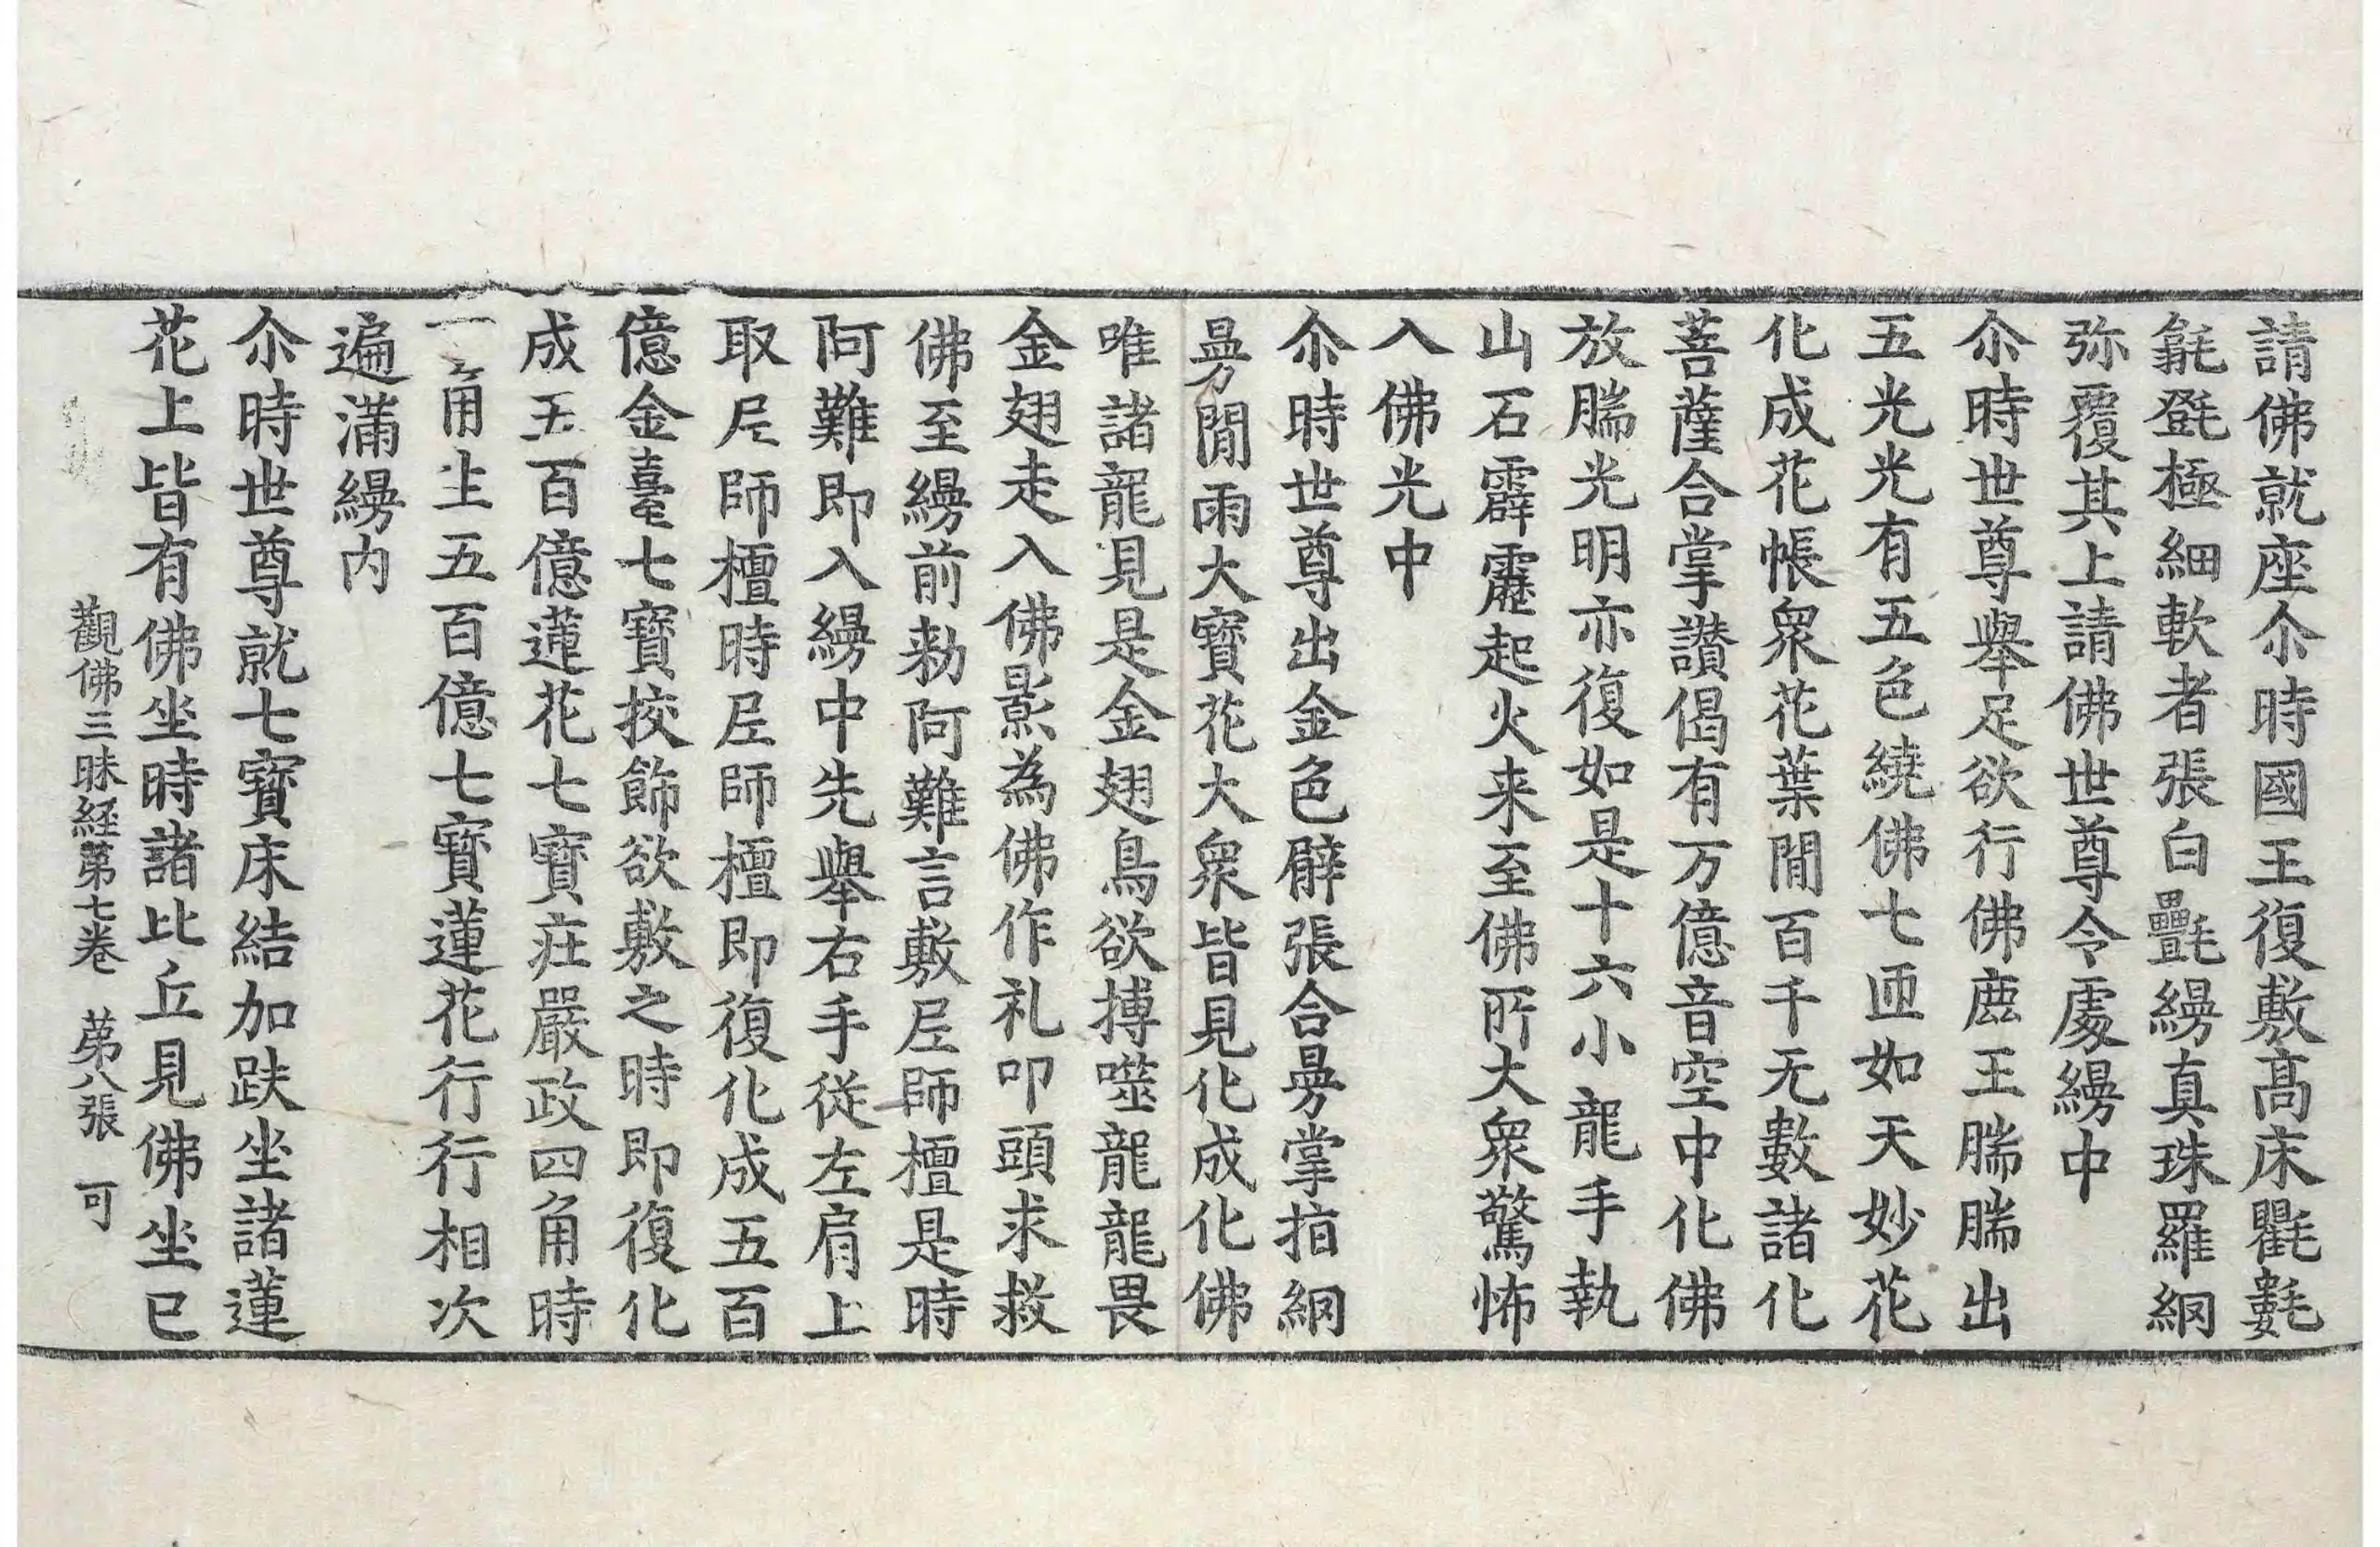 請佛就座尒時國王復敷髙床氍𣰽
㲪㲪極細軟者張白㲲縵真珠羅網
弥覆其上請佛世尊令處縵中
尒時世尊舉足欲行佛鹿王腨腨出
五光光有五色繞佛七匝如天妙花
化成花帳衆花葉閒百千无數諸化
菩薩合掌讃偈有万億音空中化佛
放腨光明亦復如是十六小龍手執
山石霹靂起火来至佛所大衆驚怖
入佛光中
尒時世尊出金色臂張合曼掌指網
曼閒雨大寶花大衆皆見化成化佛
唯諸龍見是金翅鳥欲搏噬龍龍畏
金翅走入佛影為佛作礼叩頭求救
佛至縵前勑阿難言敷尼師檀是時
阿難即入縵中先舉右手従左肩上
取尼師檀時尼師檀即復化成五百
億金臺七寶挍飾欲敷之時即復化
成五百億蓮花七寶莊嚴政四角時
一一角生五百億七寶蓮花行行相次
遍滿縵内
尒時世尊就七寶床結加趺坐諸蓮
花上皆有佛坐時諸比丘見佛坐已
觀佛三昧経第七卷 第八張 可